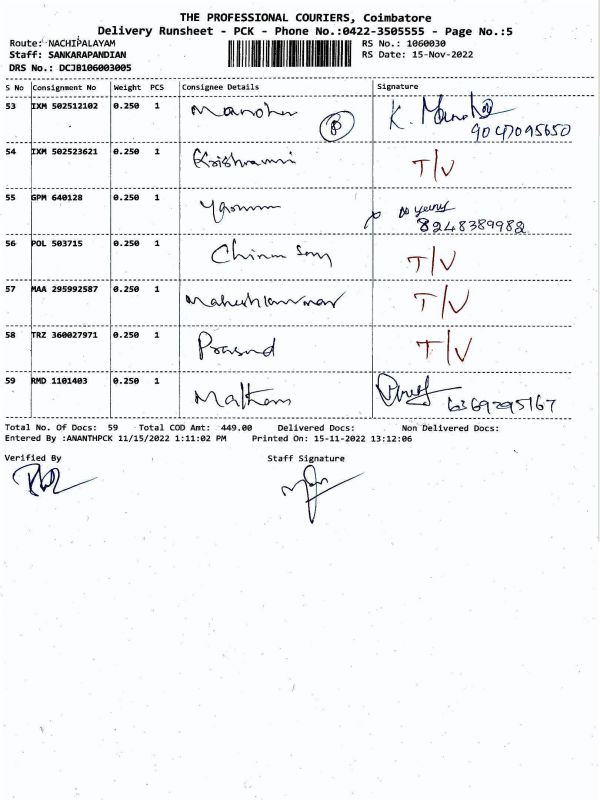 THE PROFESSIONAL COURIERS, Coimbatore
Delivery Runsheet - PCK - Phone No.:0422-3505555 - Page No.:5
Route: NACHIPALAYAM RS No.: 1060030
Staff: SANKARAPANDIAN RS Date: 15-Nov-2022
DRS No.: DCJB106003005
S No Consignment No Weight PCS Consignee Details Signature
53 IXM 502512102 0.250 1 Manohar B K. Mano
9047095650
54 IXM 502523621 0.250 1 T/V
55 GPM 640128 0.250 1
8248389982
56 POL 503715 0.250 1 Chinna Samy T/V
57 MAA 295992587 0.250 1 T/V
58 TRZ 360027971 0.250 1 Prasad T/V
59 RMD 1101403 0.250 1 6369295167
Total No. Of Docs: 59 Total COD Amt: 449.00 Delivered Docs: Non Delivered Docs:
Entered By :ANANTHPCK 11/15/2022 1:11:02 PM Printed On: 15-11-2022 13:12:06
Verified By Staff Signature